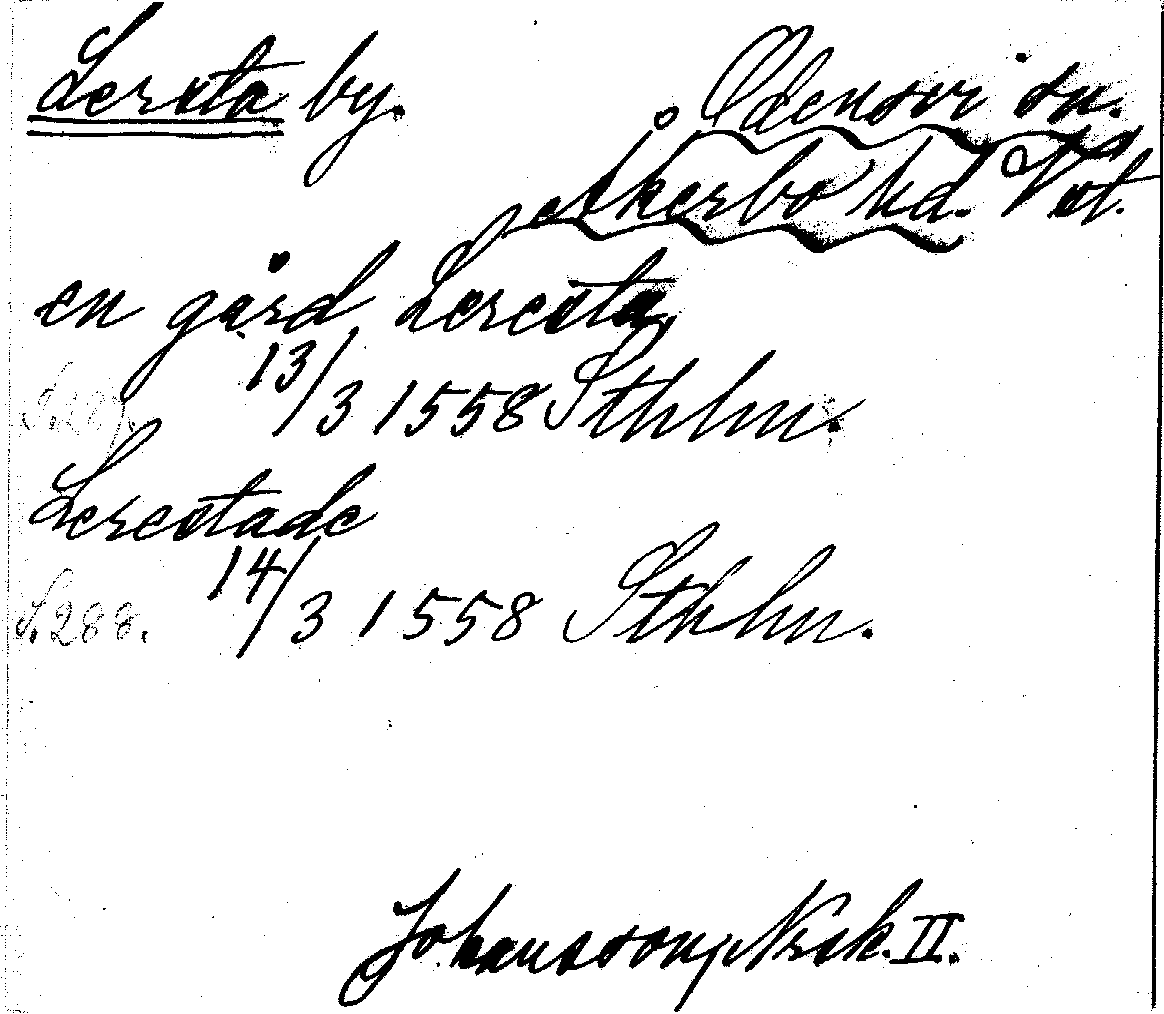 Lersta by. Odensvi sn.
Åkerbo hd. Vst.
en gård Leresta,
S. 287. 13/3 1558 Sthlm.
Lerestade
S. 288. 14/3 1558 Sthlm.
Johansson, Nrsk. II.